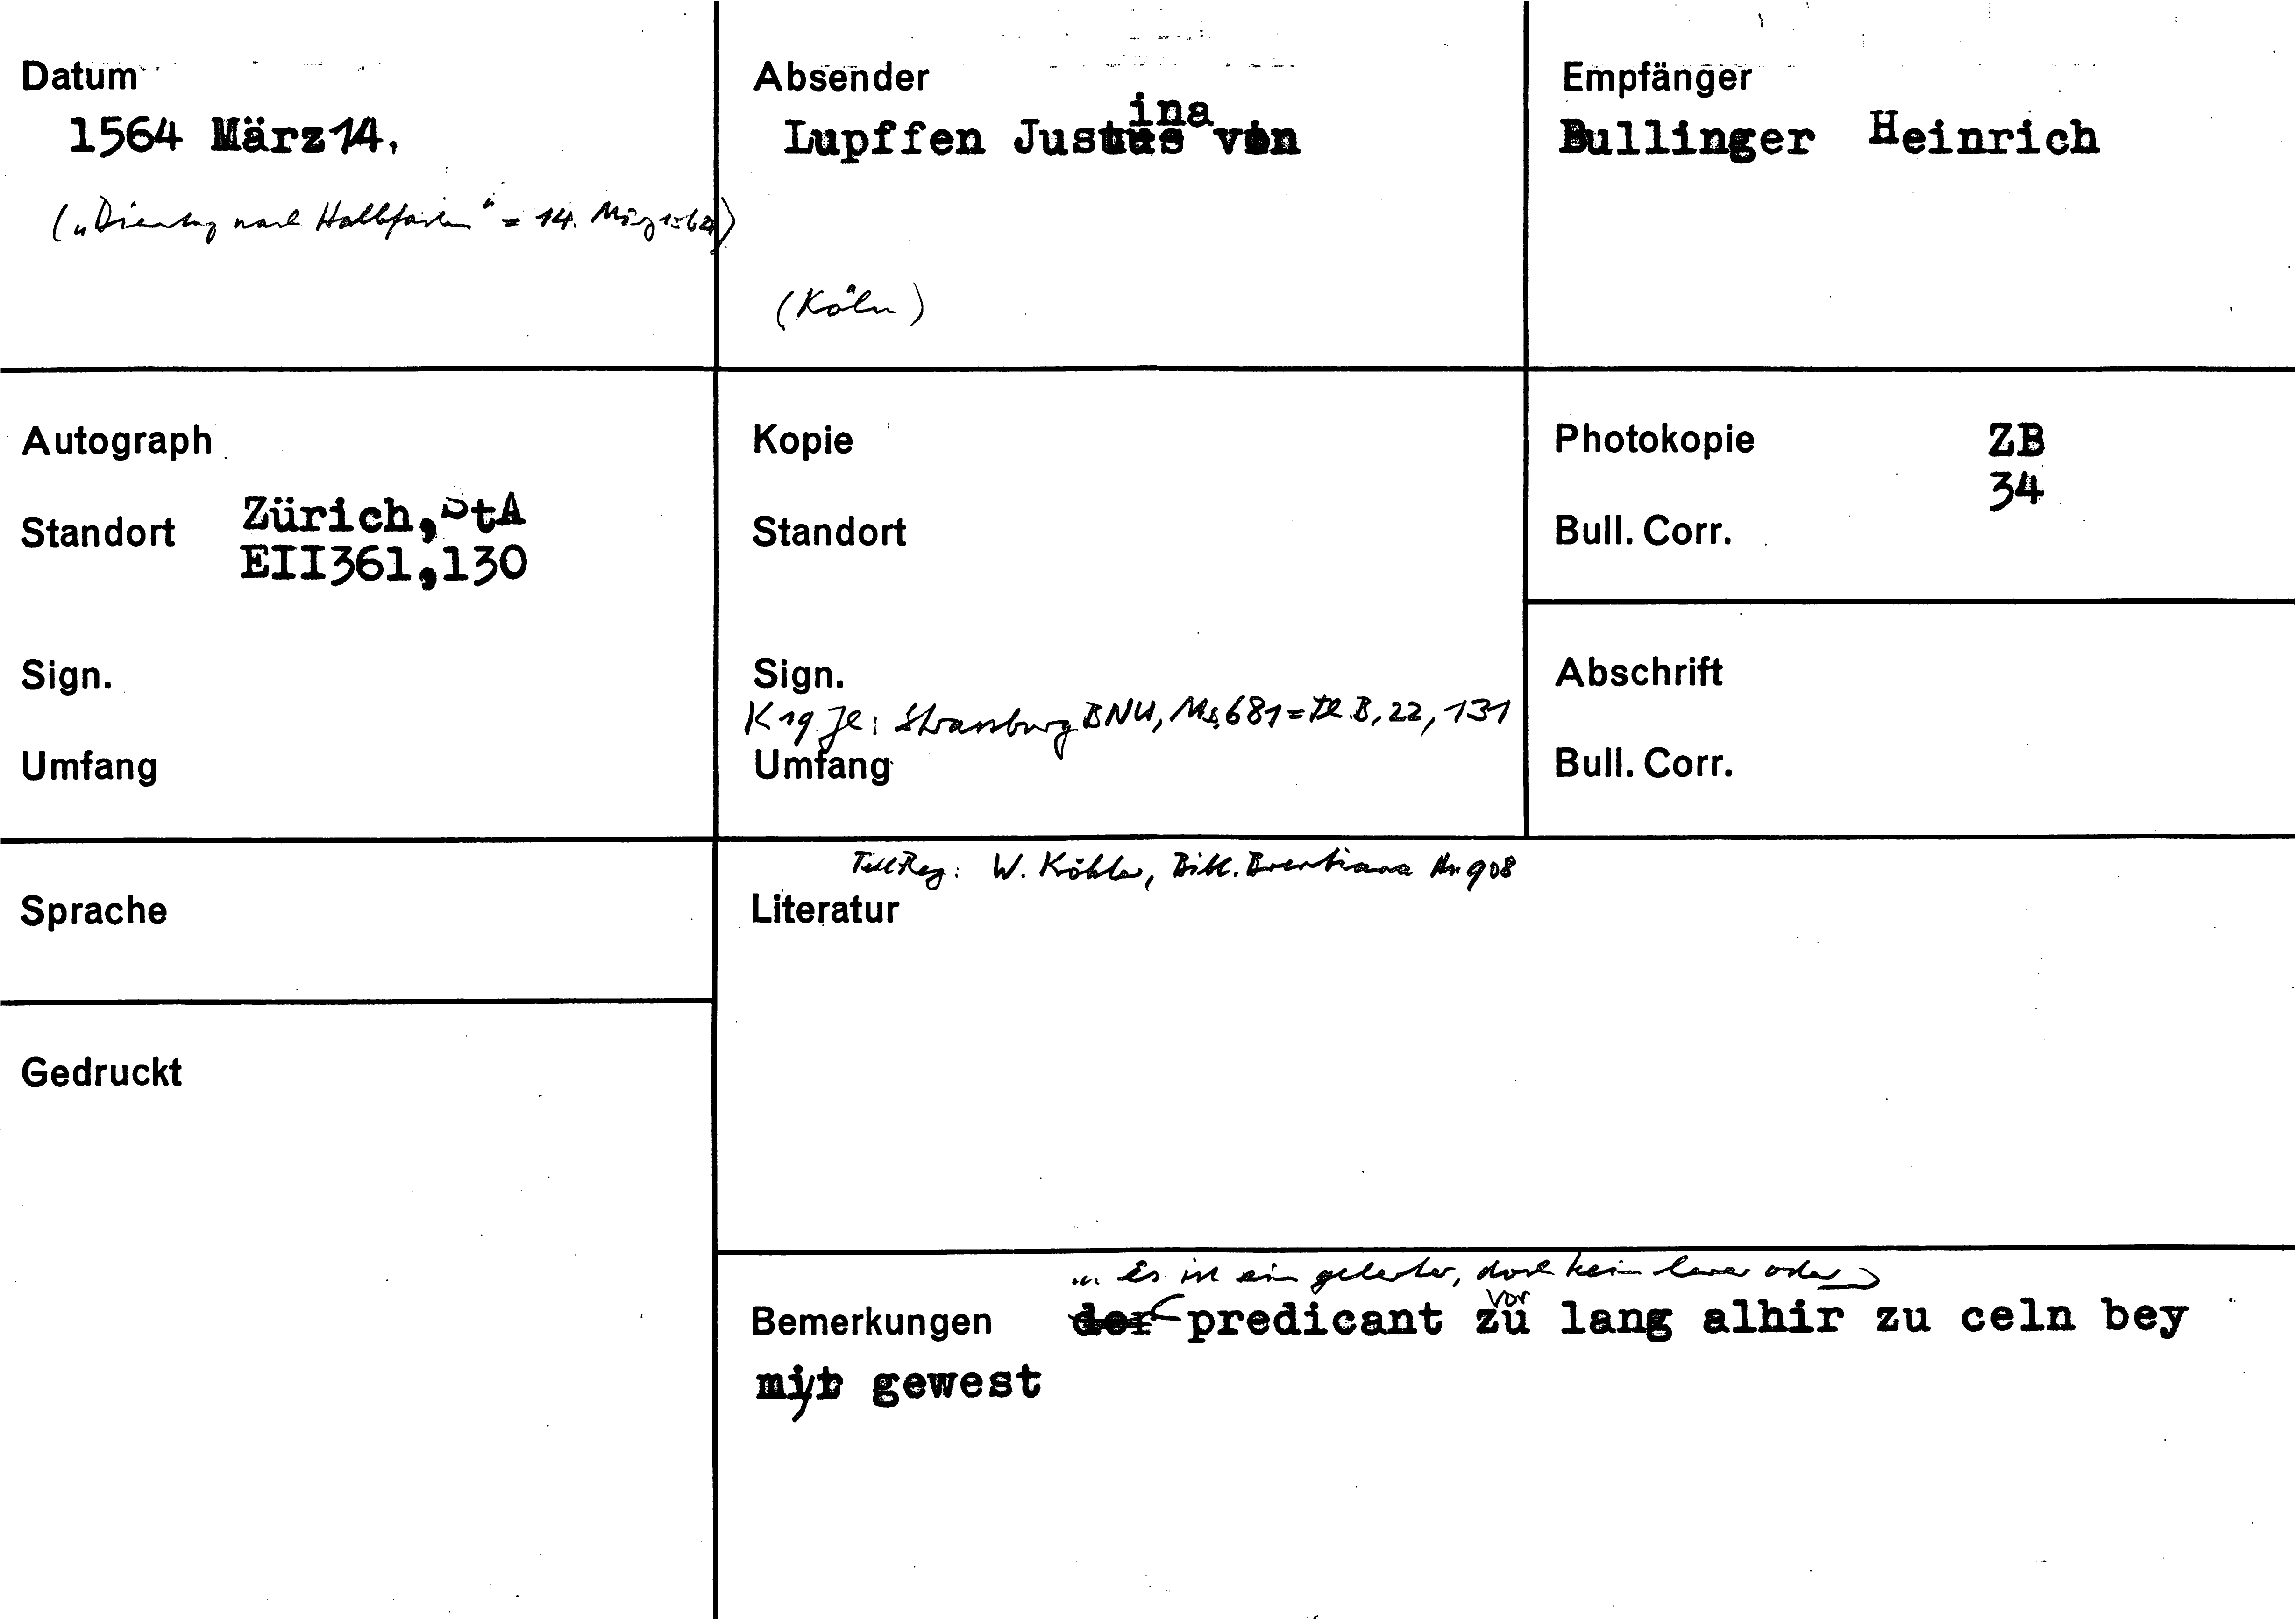 Datum
1564 März 14.
(„Dienstag nach Halbfasten" = 14. März 1564)
Absender
ina
Lupffen Justus von
(Köln)
Empfänger
Bullinger Heinrich
Autograph
Standort Zürich, StA
EII361,130
Sign.
Umfang
Kopie
Standort
Sign.
Strassburg BNU, Ms 681 = B, 22, 131
Umfang
Photokopie ZB
34
Bull. Corr.
Abschrift
Bull. Corr.
Sprache
Gedruckt
TeilReg: W. Köhler, Bibl. Brentiana Nr. 908
Literatur
... Es ist ein gelerter, doch kein oder
vor
Bemerkungen der predicant zu lang alhir zu celn bey
myr gewest